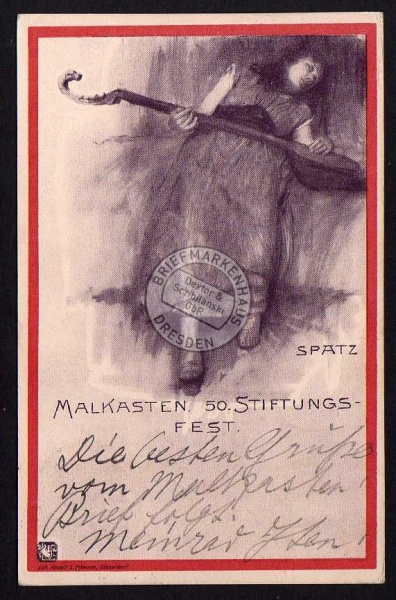 BRIEFMARKENHAUS
Dexter &
Schilanski
GbR
DRESDEN
SPATZ
MALKASTEN. 50. STIFTUNGS-
FEST.
Die besten Grüße
vom Malkasten!
Brief folgt.
Meinrad